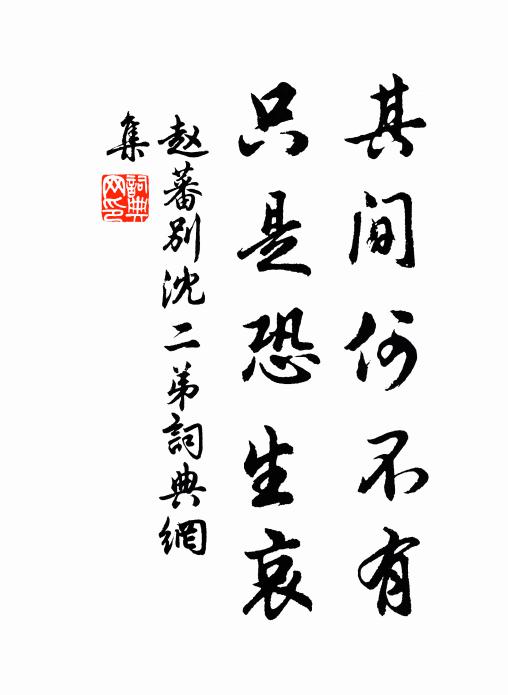 其间何不有
只是恐生哀
赵蕃别沈二弟詞典網
集
詞典网印